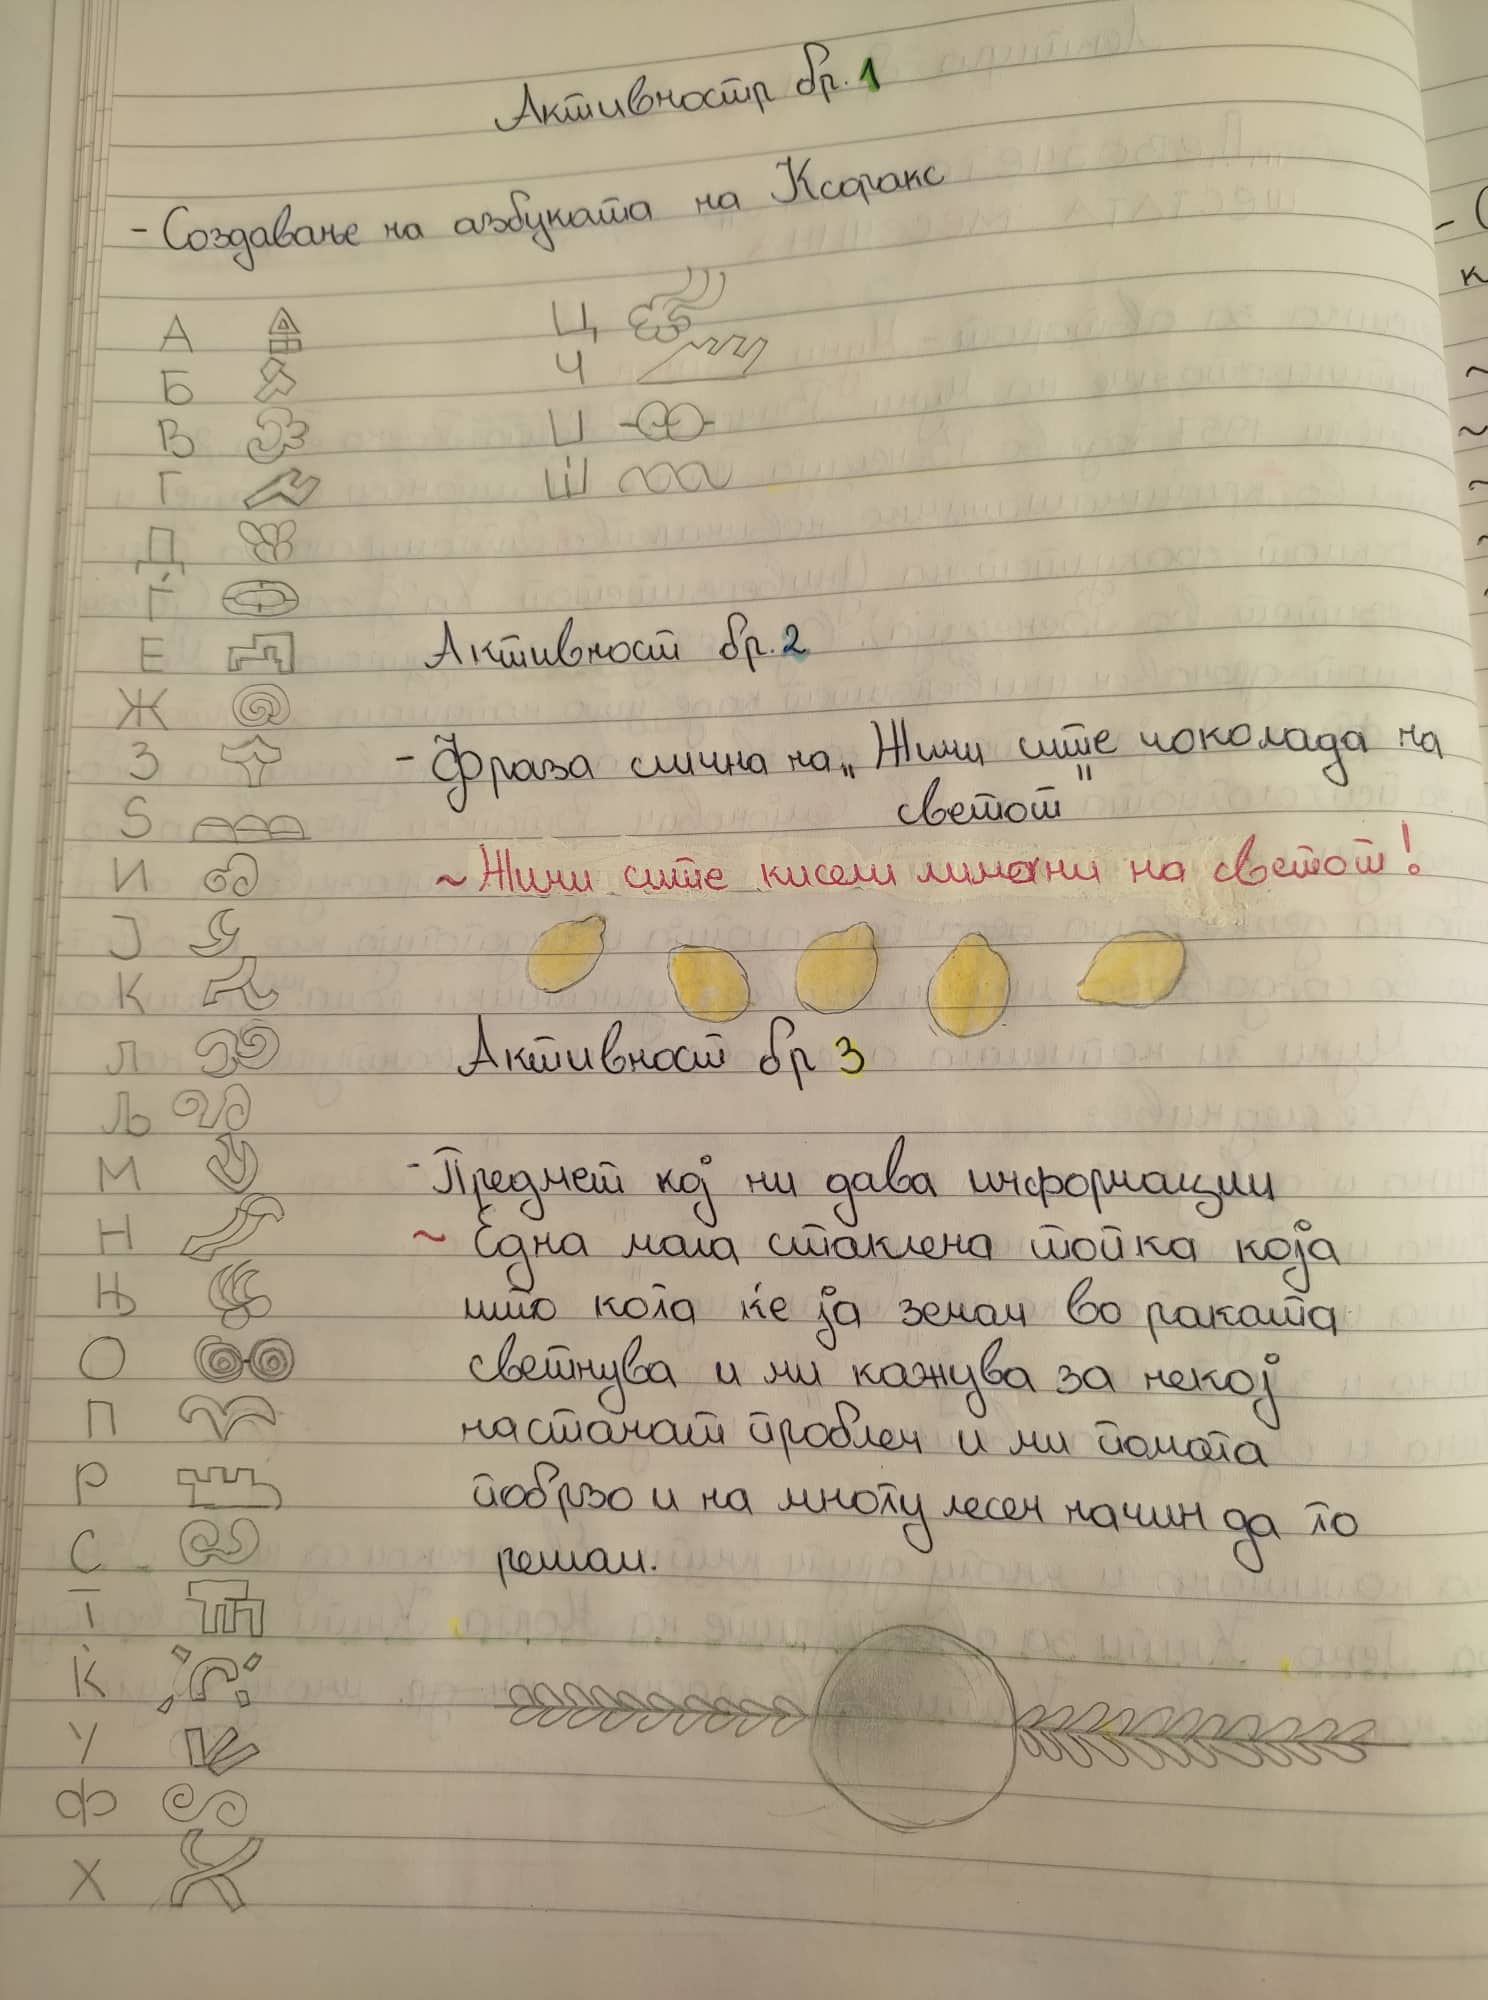 Активност бр. 1
- Создавање на азбуката на Ксоракс
А
Б
В
Г
Д
Ѓ
Е
Ж
З
Ѕ
И
Ј
К
Л
Љ
М
Н
Њ
О
П
Р
С
Т
Ќ
У
Ф
Х
Ц
Ч
Џ
Ш
Активност бр. 2
- Фраза слична на „Жими сите чоколада на
светот"
~ Жими сите кисели лимони на светот!
Активност бр 3
- Предмет кој ни дава информации
~ Една мала стаклена топка која
што кога ќе ја земам во раката
светнува и ми кажува за некој
настанат проблем и ми помага
побрзо и на многу лесен начин да го
решам.